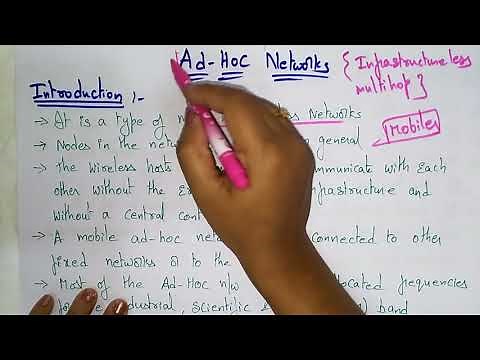 Ad-Hoc Networks { Infrastructureless
multihop }
Introduction :-
→ It is a type of Networks
Mobiles
→ Nodes in the netw general
→ The Wireless hosts communicate with Each
other without the Ex infrastructure and
without a central cont
→ A mobile ad-hoc net connected to other
fixed networks or to the
→ Most of the Ad-Hoc n/w located frequencies
dustrial, Scientific band